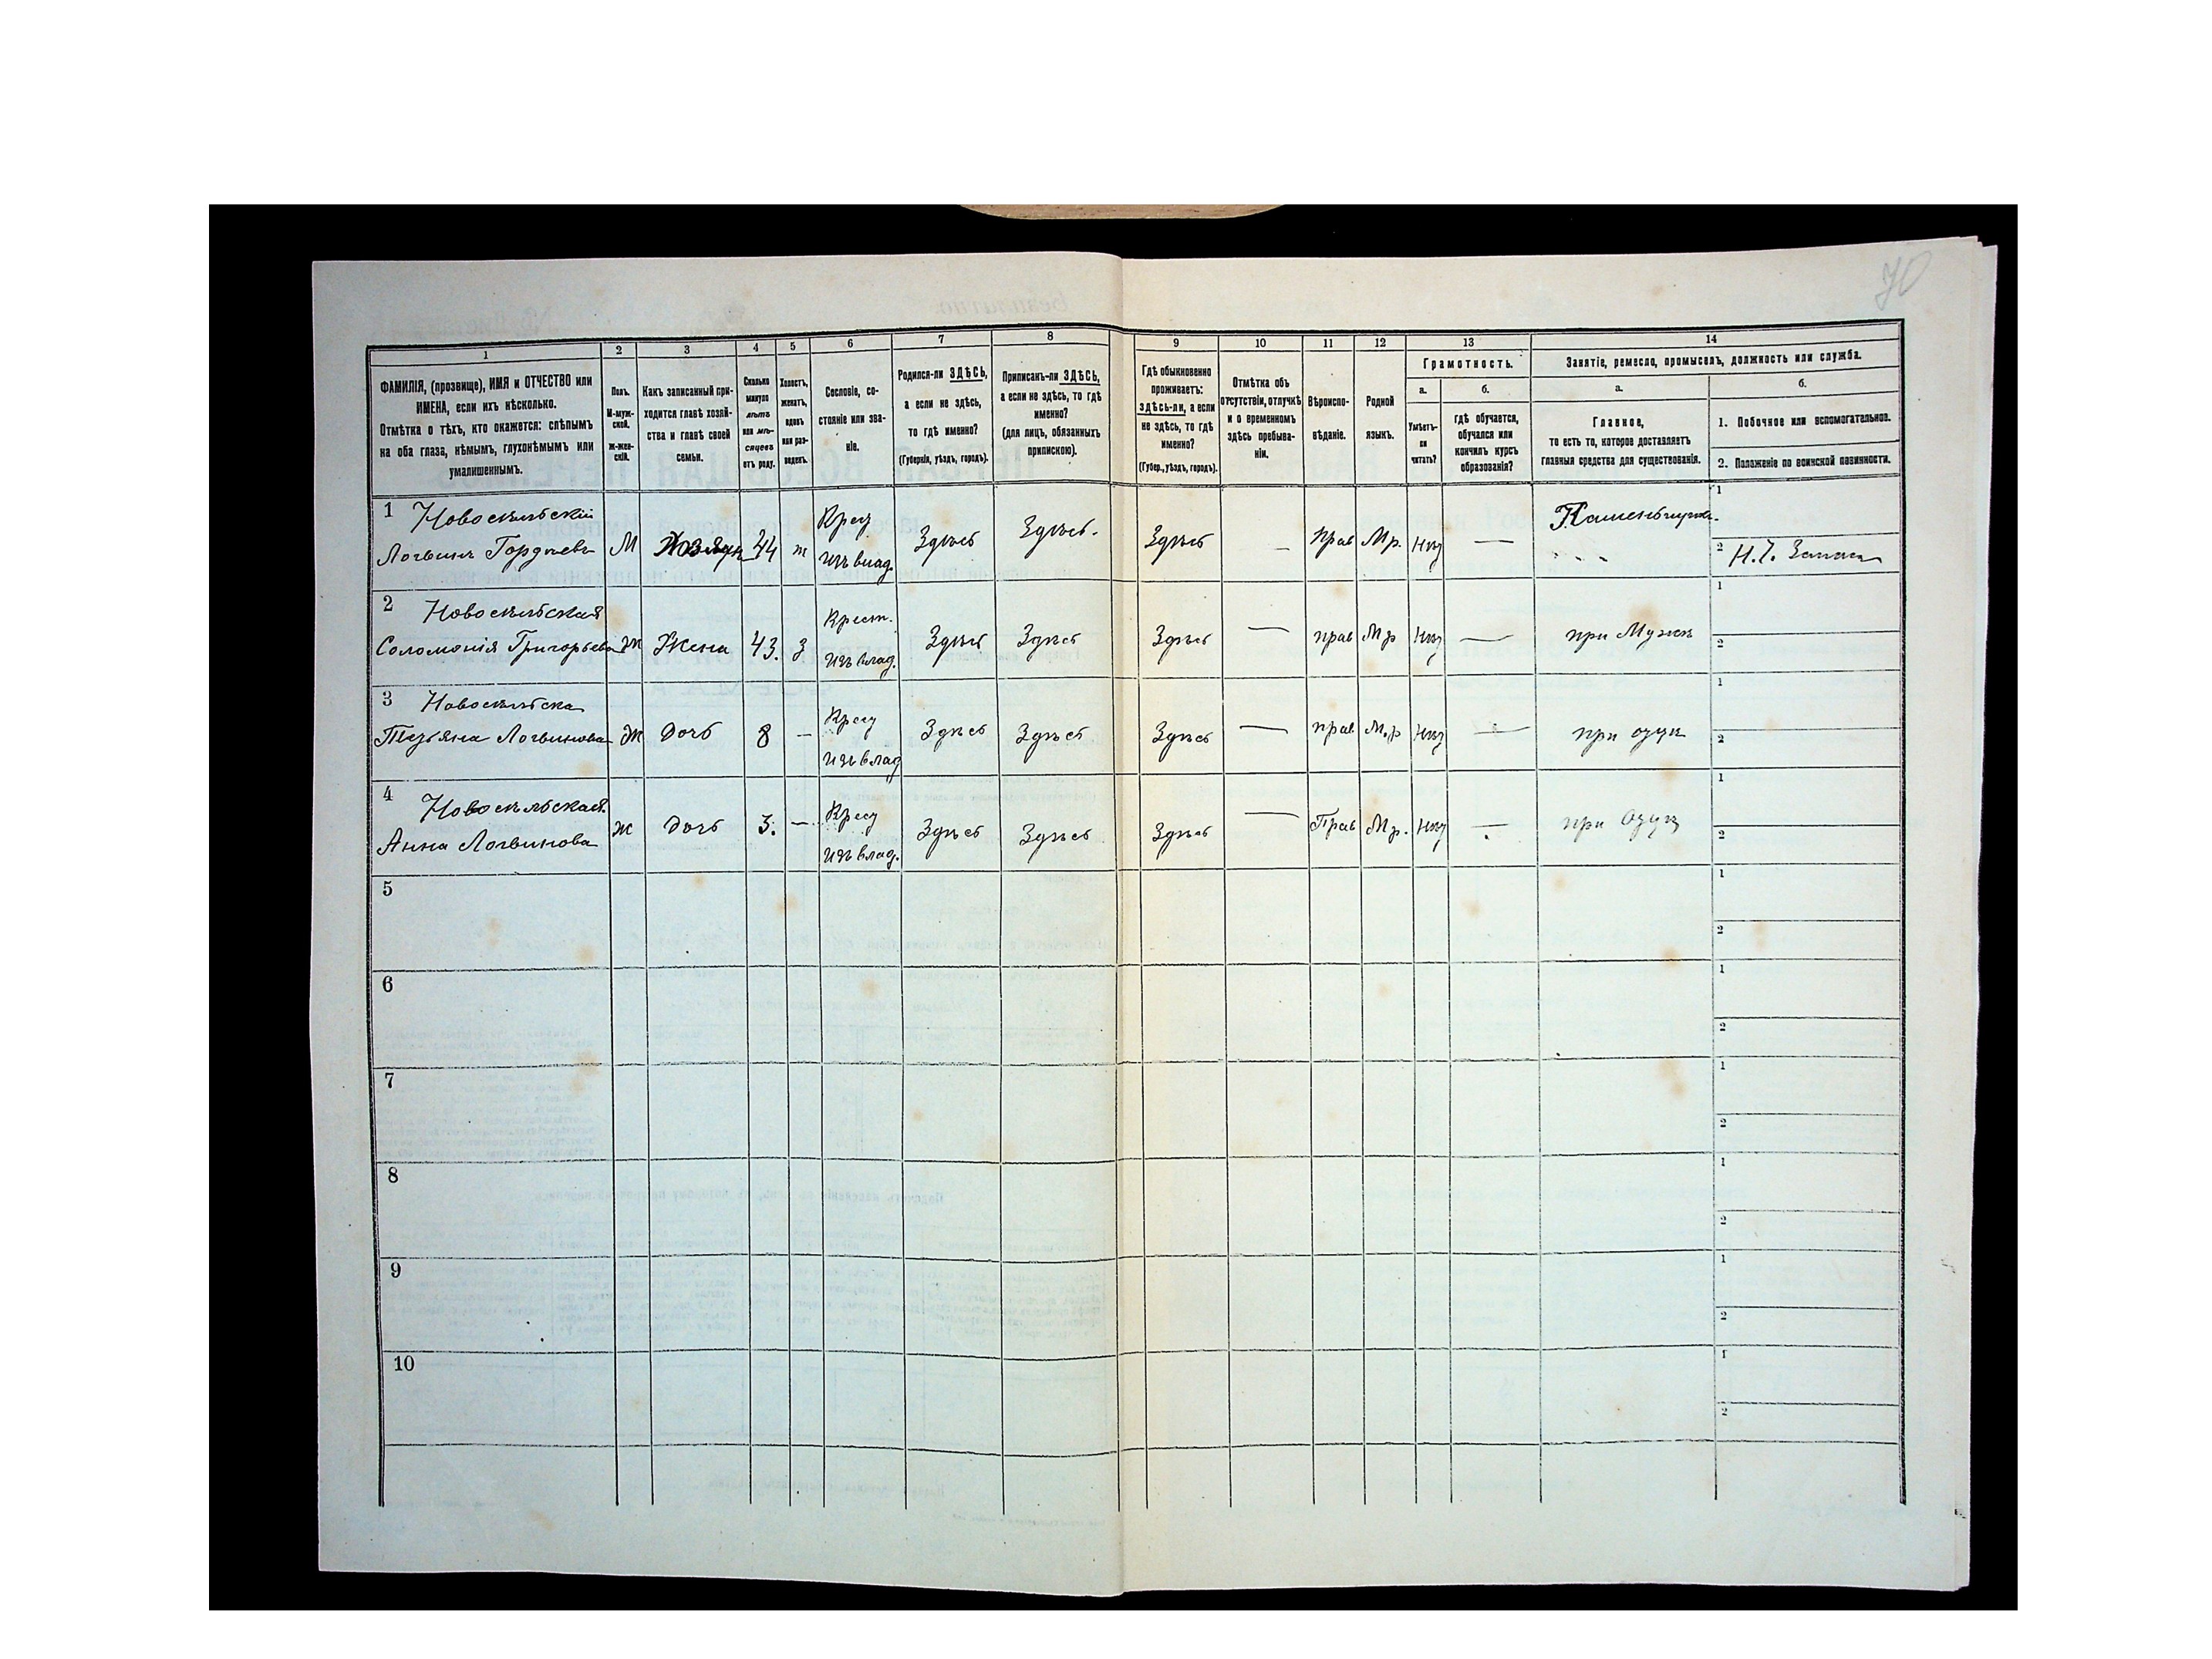 70
1 2 3 4 5 6 7 8 9 10 11 12 13 14
ФАМИЛІЯ, (прозвище), ИМЯ и ОТЧЕСТВО или
ИМЕНА, если ихъ нѣсколько.
Отмѣтка о тѣхъ, кто окажется: слѣпымъ
на оба глаза, нѣмымъ, глухонѣмымъ или
умалишеннымъ.
Полъ.
М-муж-
ской.
Ж-жен-
скій.
Какъ записанный при-
ходится главѣ хозяй-
ства и главѣ своей
семьи.
Сколько
минуло
лѣтъ
или мѣ-
сяцевъ
отъ роду.
Холостъ,
женатъ,
вдовъ
или раз-
веденъ.
Сословіе, со-
стояніе или зва-
ніе.
Родился-ли ЗДѢСЬ,
а если не здѣсь,
то гдѣ именно?
(Губернія, уѣздъ, городъ).
Приписанъ-ли ЗДѢСЬ,
а если не здѣсь, то гдѣ
именно?
(для лицъ, обязанныхъ
припискою).
Гдѣ обыкновенно
проживаетъ:
здѣсь-ли, а если
не здѣсь, то гдѣ
именно?
(Губер., уѣздъ, городъ).
Отмѣтка объ
отсутствіи, отлучкѣ
и о временномъ
здѣсь пребыва-
ніи.
Вѣроиспо-
вѣданіе.
Родной
языкъ.
Грамотность.
а.
Умѣетъ-
ли
читать?
б.
гдѣ обучается,
обучался или
кончилъ курсъ
образованія?
Занятіе, ремесло, промыселъ, должность или служба.
а.
Главное,
то есть то, которое доставляетъ
главныя средства для существованія.
б.
1. Побочное или вспомогательное.
2. Положеніе по воинской повинности.
1 Новосѣльскій
Логвинъ Гордѣевъ М Хозяинъ 44 ж Крес изъ влад. Здѣсь Здѣсь. Здѣсь — прав Мр. нѣт —
1
2 Н.Ч. Запаса
2 Новосѣльская
Соломонія Григорьева Ж Жена 43. З Крест. изъ влад. Здѣсь Здѣсь Здѣсь — прав Мр нѣт — при Мужѣ
1
2
3 Новосѣльска
Татьяна Логвинова Ж Дочь 8 — Крест изъ влад Здѣсь Здѣсь Здѣсь — прав М.р нѣт — при отцѣ
1
2
4 Новосѣльская.
Анна Логвинова Ж Дочь 3. — Крест изъ влад. Здѣсь Здѣсь Здѣсь — Прав Мр. нѣт — при Отцѣ
1
2
5
1
2
6
1
2
7
1
2
8
1
2
9
1
2
10
1
2